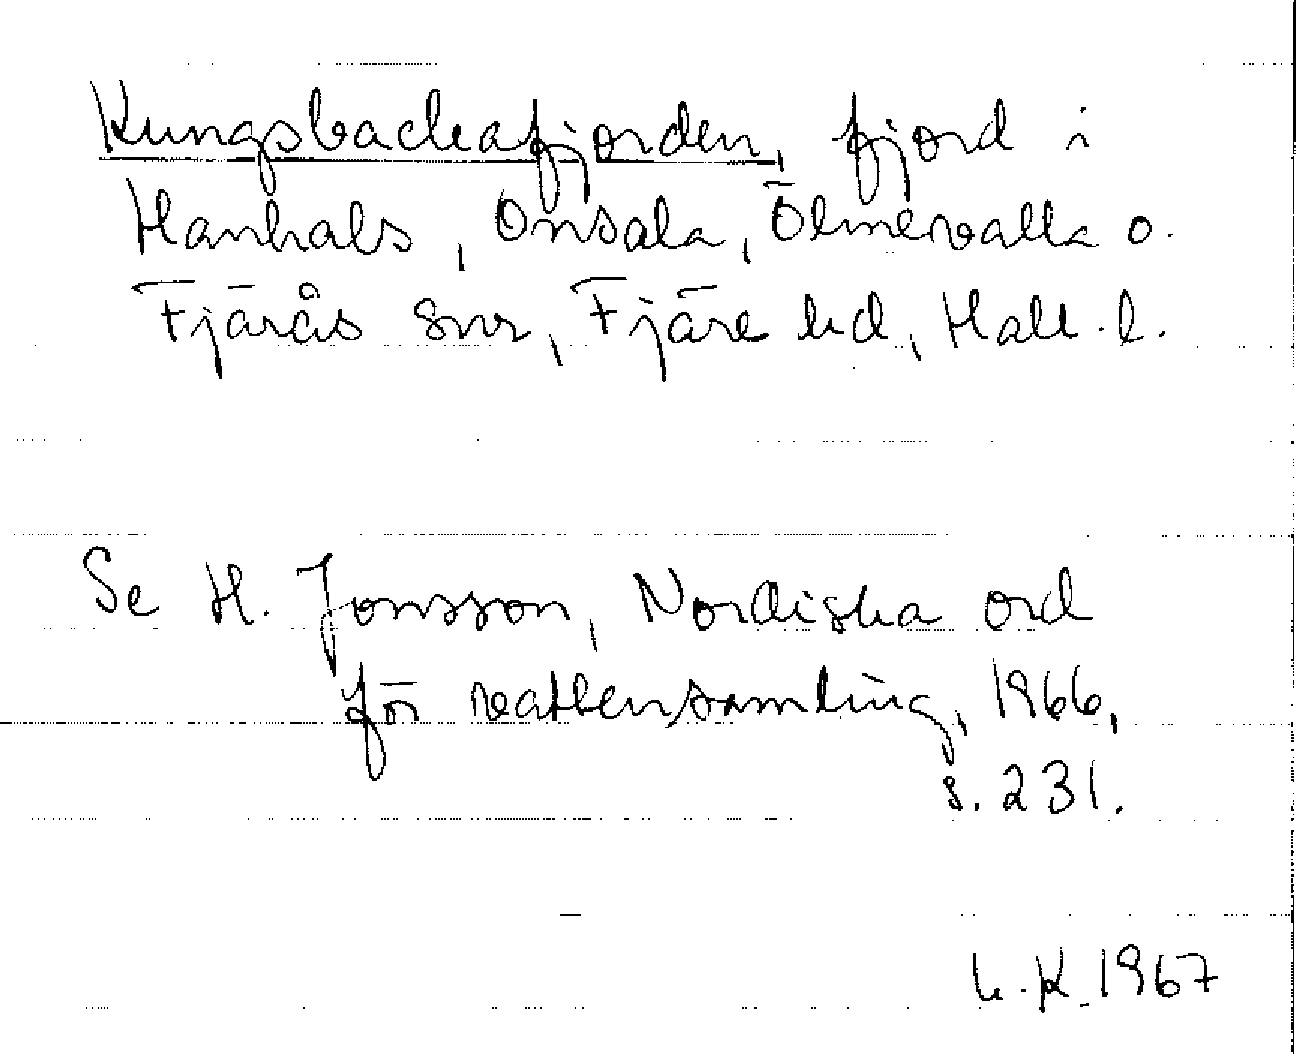 Kungsbackafjorden, fjord i
Hanhals, Onsala, Ölmevalla o.
Fjärås snr, Fjäre hd, Hall. l.
Se H. Jonsson, Nordiska ord
för vattensamling, 1966,
s. 231.
L.K. 1967